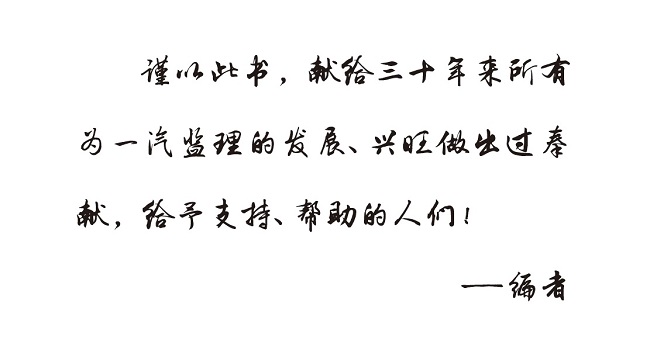 谨以此书，献给三十年来所有
为一汽监理的发展、兴旺做出过奉
献，给予支持、帮助的人们！
——编者